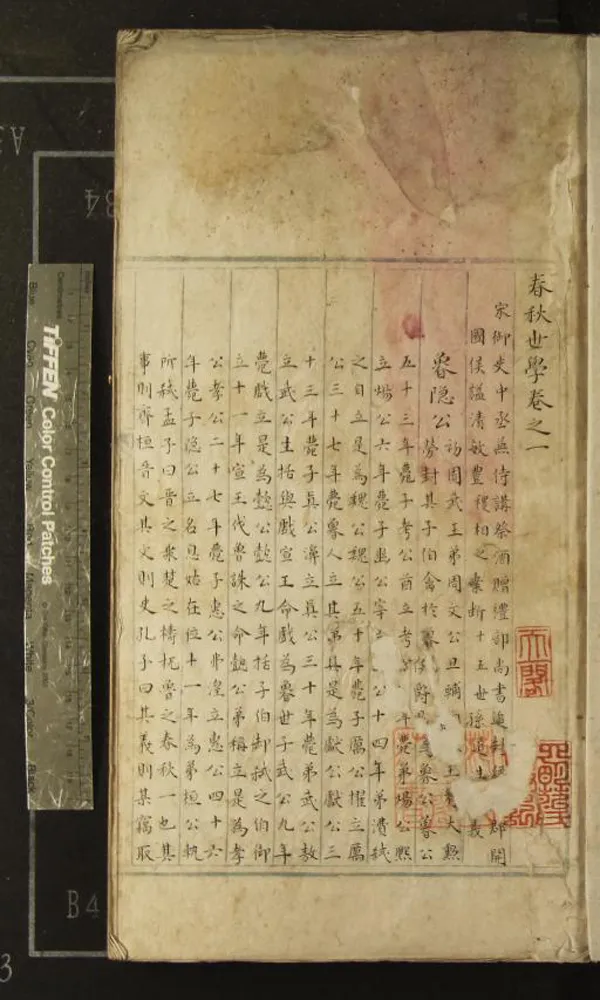 春秋世學卷之一
宋御史中丞兼侍講祭酒贈禮部尚書追封 郡開
國侯謚清敏豐稷相之案斷十五世孫道生
魯隱公
初周武王弟周文公旦輔 王有大勲
勞封其子伯禽於魯侯爵 魯公魯公
五十三年薨子考公酋立考 年薨弟煬公熙
立煬公六年薨子幽公宰立 公十四年弟潰弒
之自立是為魏公魏公五十年薨子厲公擢立厲
公三十七年薨魯人立其弟具是為獻公獻公三
十三年薨子真公濞立真公三十年薨弟武公敖
立武公生括與戲宣王命戲為魯世子武公九年
薨戲立是為懿公懿公九年括子伯卸弒之伯御
立十一年宣王伐魯誅之命懿公弟稱立是為孝
公孝公二十七年薨子惠公弗湟立惠公四十六
年薨子隱公立名息姑在位十一年為弟桓公軌
所弒孟子曰晉之乘楚之檮杌魯之春秋一也其
事則齊桓晉文其文則史孔子曰其義則某竊取
TIFFEN Color Control Patches
Blue Cyan Green Yellow Red Magenta White 3/Color Black
A3
B4
B4
3